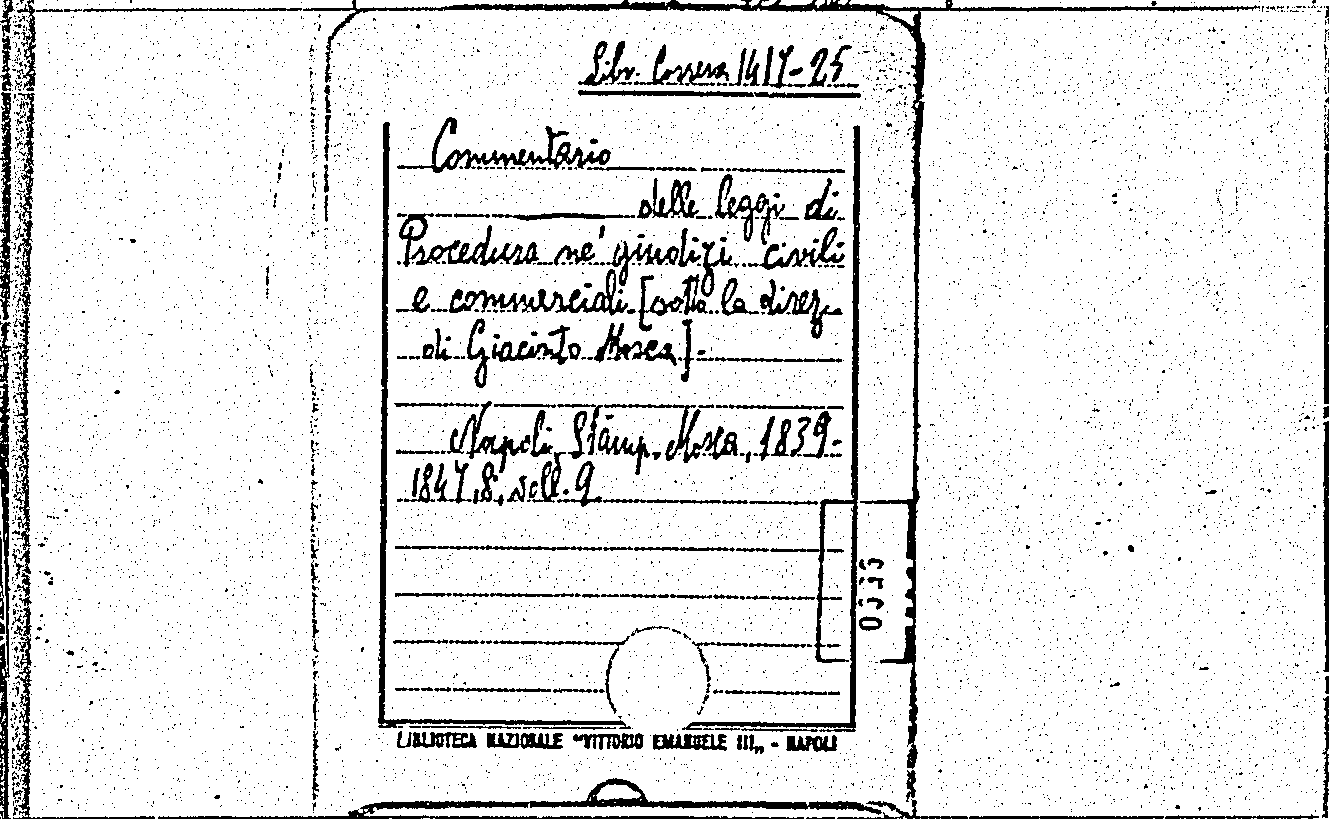 Libr. Cossera 1417-25
Commentario
delle leggi di
Procedura ne' giudizi civili
e commerciali [sotto la direz.
di Giacinto Mosca].
Napoli, Stamp. Mosca, 1839-
1847, 8°, voll. 9.
BIBLIOTECA NAZIONALE "VITTORIO EMANUELE III„ - NAPOLI